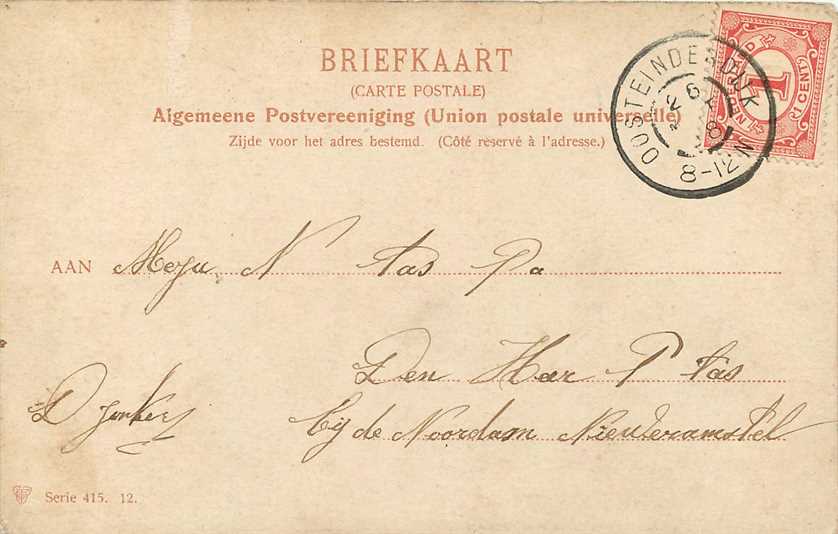 BRIEFKAART
(CARTE POSTALE)
Algemeene Postvereeniging (Union postale universelle)
Zijde voor het adres bestemd. (Côté réservé à l'adresse.)
OOSTEINDERDIJK
26
8
8-12V
1
(1 CENT)
AAN Meju N tas Pa
Den Heer P tas
D Jonker
bij de Noordam Nieuweramstel
Serie 415. 12.